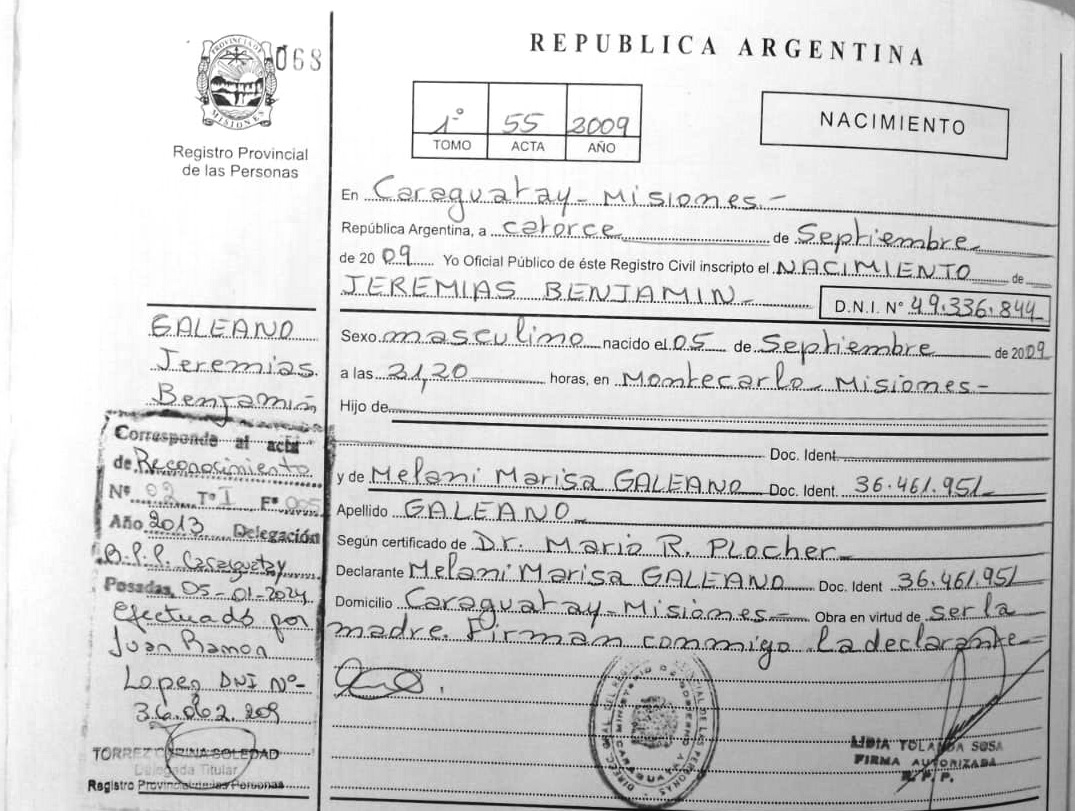 068
PROVINCIA DE
MISIONES
Registro Provincial
de las Personas
GALEANO
Jeremias
Benjamin
Corresponde al acta
de Reconocimiento
Nº 02 Tº I Fº 005
Año 2013 Delegación
Caraguatay
Posadas, 05-01-2024
efectuado por
Juan Ramon
Lopez DNI Nº-
36.062.209
TORREZ CORINA SOLEDAD
Delegada Titular
Registro Provincial de las Personas
REPUBLICA ARGENTINA
1º 55 2009
TOMO ACTA AÑO
NACIMIENTO
En Caraguatay - Misiones.-
República Argentina, a catorce de Septiembre
de 2009 Yo Oficial Público de éste Registro Civil inscripto el NACIMIENTO de
JEREMIAS BENJAMIN- D.N.I. Nº 49.336.844
Sexo masculino nacido el 05 de Septiembre de 2009
a las 21,20 horas, en Montecarlo- Misiones-
Hijo de
Doc. Ident.
y de Melani Marisa GALEANO Doc. Ident. 36.461.951-
Apellido GALEANO-
Según certificado de Dr. Mario R. Plocher-
Declarante Melani Marisa GALEANO Doc. Ident 36.461.951
Domicilio Caraguatay-Misiones.- Obra en virtud de ser la
madre. Firman conmigo la declarante=
LIDIA YOLANDA SOSA
FIRMA AUTORIZADA
R.P.P.